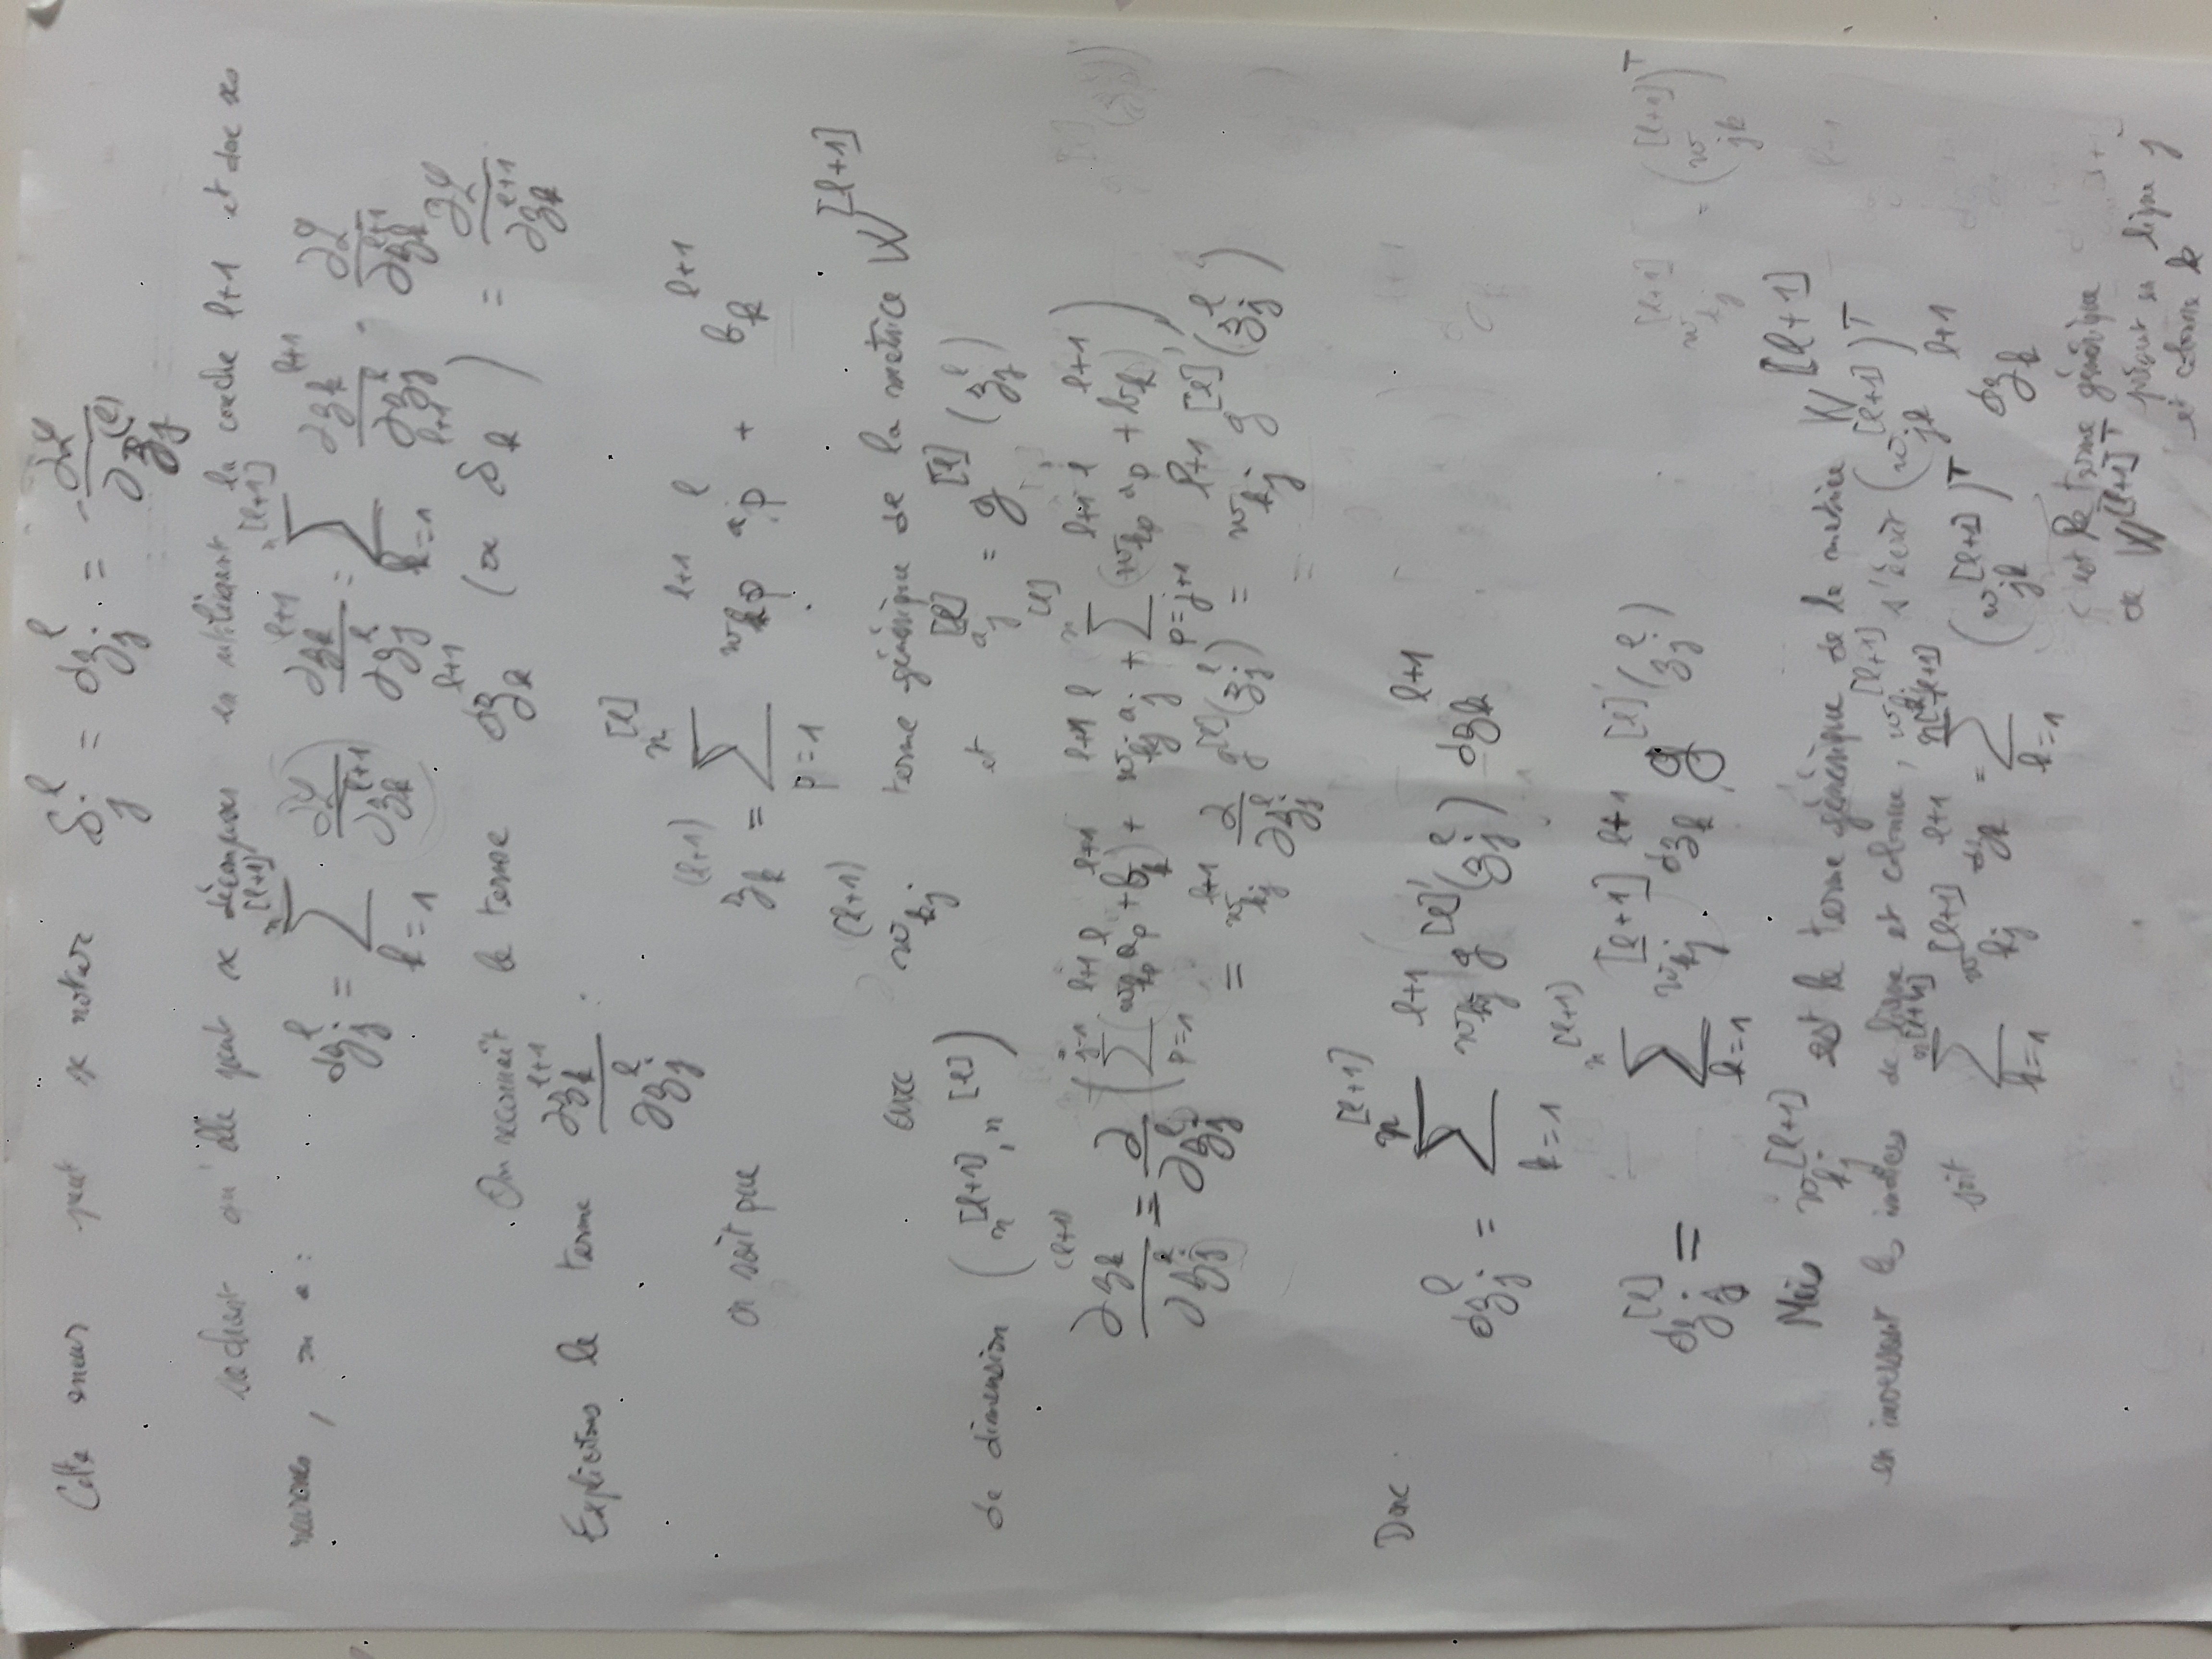 Cette erreur peut se noter δ_j^l = dz_j^l = ∂L/∂z_j^(l)
sachant qu'elle peut se décomposer en utilisant la couche l+1 et donc ses
neurones, on a :
dz_j^l = Σ_{k=1}^{n^[l+1]} (∂L/∂z_k^{l+1}) ∂z_k^{l+1}/∂z_j^l = Σ_{k=1}^{n^[l+1]} ∂z_k^{l+1}/∂z_j^l · ∂L/∂z_k^{l+1}
On reconnaît le terme dz_k^{l+1} (ou δ_k^{l+1}) = ∂L/∂z_k^{l+1}
Explicitons le terme ∂z_k^{l+1}/∂z_j^l .
on sait que z_k^{(l+1)} = Σ_{p=1}^{n^[l]} w_{kp}^{l+1} a_p^l + b_k^{l+1}
avec w_{kj}^{(l+1)} terme générique de la matrice W^{[l+1]}
de dimension (n^{[l+1]}, n^{[l]}) et a_j^{[l]} = g^{[l]}(z_j^l)
∂z_k^{(l+1)}/∂z_j^l = ∂/∂z_j^l ( Σ_{p=1}^{j-1} (w_{kp}^{l+1} a_p^l + b_k^{l+1}) + w_{kj}^{l+1} a_j^l + Σ_{p=j+1}^{n^[l]} (w_{kp}^{l+1} a_p^l + b_k^{l+1}) )
= w_{kj}^{l+1} ∂/∂z_j^l g^{[l]}(z_j^l) = w_{kj}^{l+1} g^{[l]'}(z_j^l)
Donc
dz_j^l = Σ_{k=1}^{n^[l+1]} w_{kj}^{l+1} g^{[l]'}(z_j^l) dz_k^{l+1}
dz_j^{[l]} = Σ_{k=1}^{n^[l+1]} w_{kj}^{[l+1]} dz_k^{l+1} g^{[l]'}(z_j^l)
Mais w_{kj}^{[l+1]} est le terme générique de la matrice W^{[l+1]}
en inversant les indices de ligne et colonne, w_{kj}^{[l+1]} s'écrit (w_{jk}^{[l+1]})^T
soit Σ_{k=1}^{n^[l+1]} w_{kj}^{[l+1]} dz_k^{l+1} = Σ_{k=1}^{n^[l+1]} (w_{jk}^{[l+1]})^T dz_k^{l+1}
c'est le terme générique
de W^{[l+1]T} présent en ligne j
et colonne k